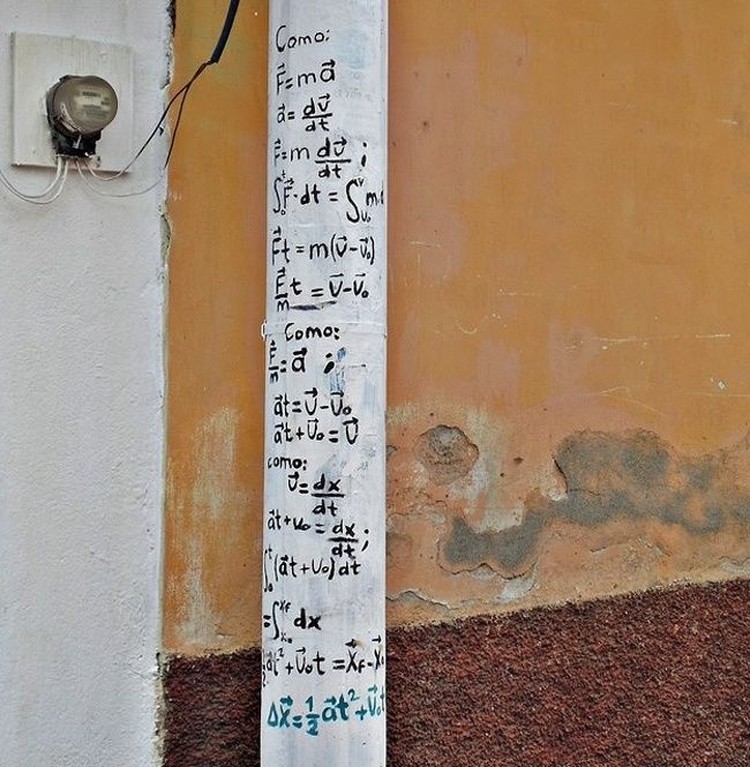 Como:
F⃗=ma⃗
a⃗=dv⃗/dt
F⃗=m dv⃗/dt;
∫₀ᵗF⃗·dt=∫ᵥ₀ᵛm
F⃗t=m(v⃗-v⃗₀)
F⃗/m t=v⃗-v⃗₀
Como:
F⃗/m=a⃗;
a⃗t=v⃗-v⃗₀
a⃗t+v⃗₀=v⃗
como:
v⃗=dx/dt
a⃗t+v₀=dx/dt;
∫₀ᵗ(a⃗t+v₀)dt
=∫ₓ₀ˣᶠdx
½a⃗t²+v⃗₀t=x⃗f-x⃗₀
Δx⃗=½a⃗t²+v⃗₀t